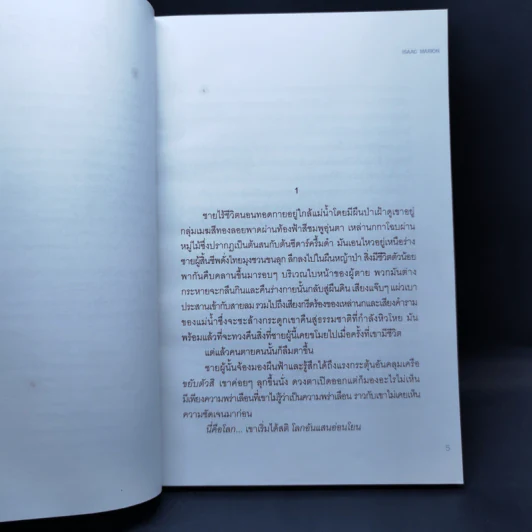 ISAAC MARION
1
ชายไร้ชีวิตนอนทอดกายอยู่ใกล้แม่น้ำโดยมีผืนป่าเฝ้าดูเขาอยู่
กลุ่มเมฆสีทองลอยพาดผ่านท้องฟ้าสีชมพูอุ่นตา เหล่านกกาโฉบผ่าน
หมู่ไม้ซึ่งปรากฏเป็นต้นสนกับต้นซีดาร์ครึ้มดำ มันเอนไหวอยู่เหนือร่าง
ชายผู้สิ้นชีพดั่งไทยมุงชวนขนลุก ลึกลงไปในผืนหญ้าป่า สิ่งมีชีวิตตัวน้อย
พากันคืบคลานขึ้นมารอบๆ บริเวณใบหน้าของผู้ตาย พวกมันต่าง
กระหายจะกลืนกินและคืนร่างกายนั้นกลับสู่ผืนดิน เสียงแจ็บๆ แผ่วเบา
ประสานเข้ากับสายลม รวมไปถึงเสียงกรีดร้องของเหล่านกและเสียงคำราม
ของแม่น้ำซึ่งจะชะล้างกระดูกเขาคืนสู่ธรรมชาติที่กำลังหิวโหย มัน
พร้อมแล้วที่จะทวงคืนสิ่งที่ชายผู้นี้เคยขโมยไปเมื่อครั้งที่เขามีชีวิต
แต่แล้วคนตายคนนั้นก็ลืมตาขึ้น
ชายผู้นั้นจ้องมองผืนฟ้าและรู้สึกได้ถึงแรงกระตุ้นอันคลุมเครือ
ขยับตัวสิ เขาค่อยๆ ลุกขึ้นนั่ง ดวงตาเปิดออกแต่ก็มองอะไรไม่เห็น
มีเพียงความพร่าเลือนที่เขาไม่รู้ว่าเป็นความพร่าเลือน ราวกับเขาไม่เคยเห็น
ความชัดเจนมาก่อน
นี่คือโลก... เขาเริ่มได้สติ โลกอันแสนอ่อนโยน
5